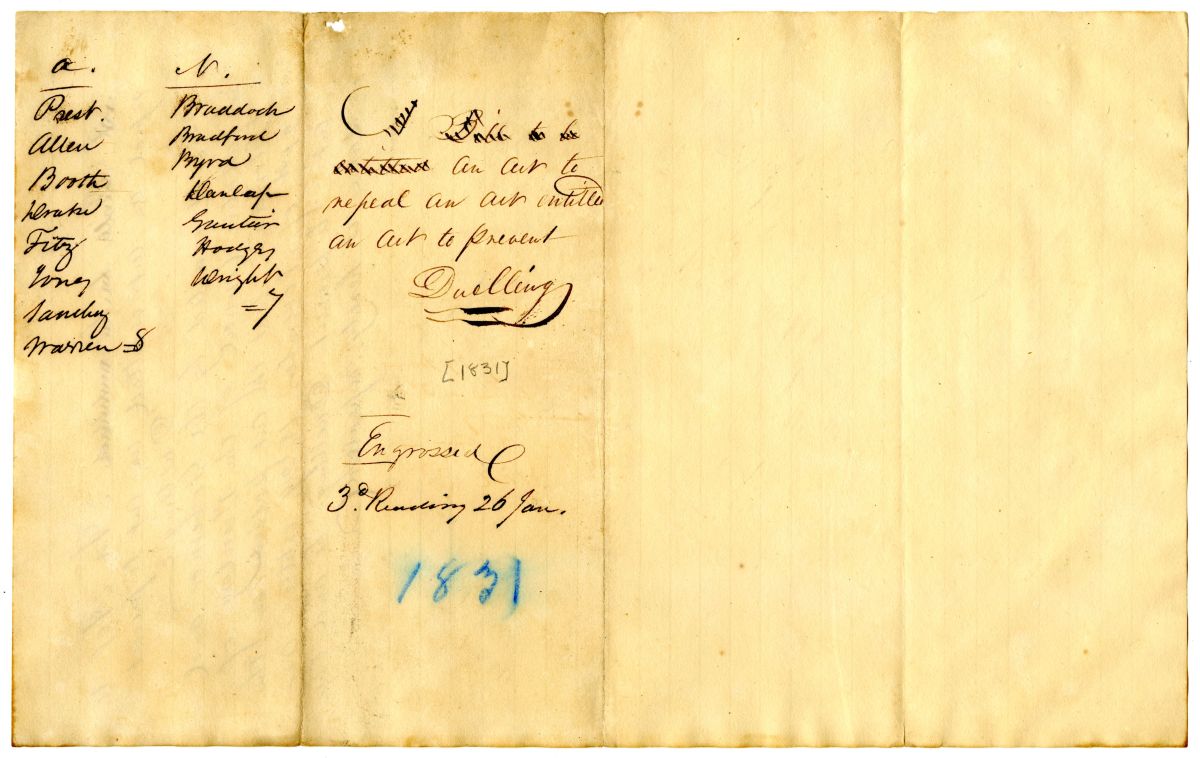 a.
Prest.
Allen
Booth
Drake
Fitz
Jones
Sanchez
Warren =8
N.
Braddock
Bradford
Byrd
Dunlap
Gautier
Hodges
Wright
=7
Bill to be
entitled an act to
repeal an act intitled
an act to prevent
Duelling
[1831]
Engrossed
3d. Reading 26 Jan.
1831